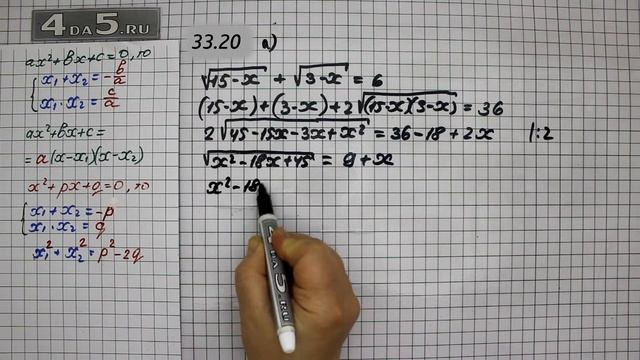 4DA5.RU
ax²+bx+c=0, то
x₁+x₂=-b/a
x₁·x₂=c/a
ax²+bx+c=
=a(x-x₁)(x-x₂)
x²+px+q=0, то
x₁+x₂=-p
x₁·x₂=q
x₁²+x₂²=p²-2q
33.20 а)
√(15-x) + √(3-x) = 6
(15-x)+(3-x)+2√((15-x)(3-x)) = 36
2√(45-15x-3x+x²) = 36-18+2x |:2
√(x²-18x+45) = 9+x
x²-18
4DA5.RU